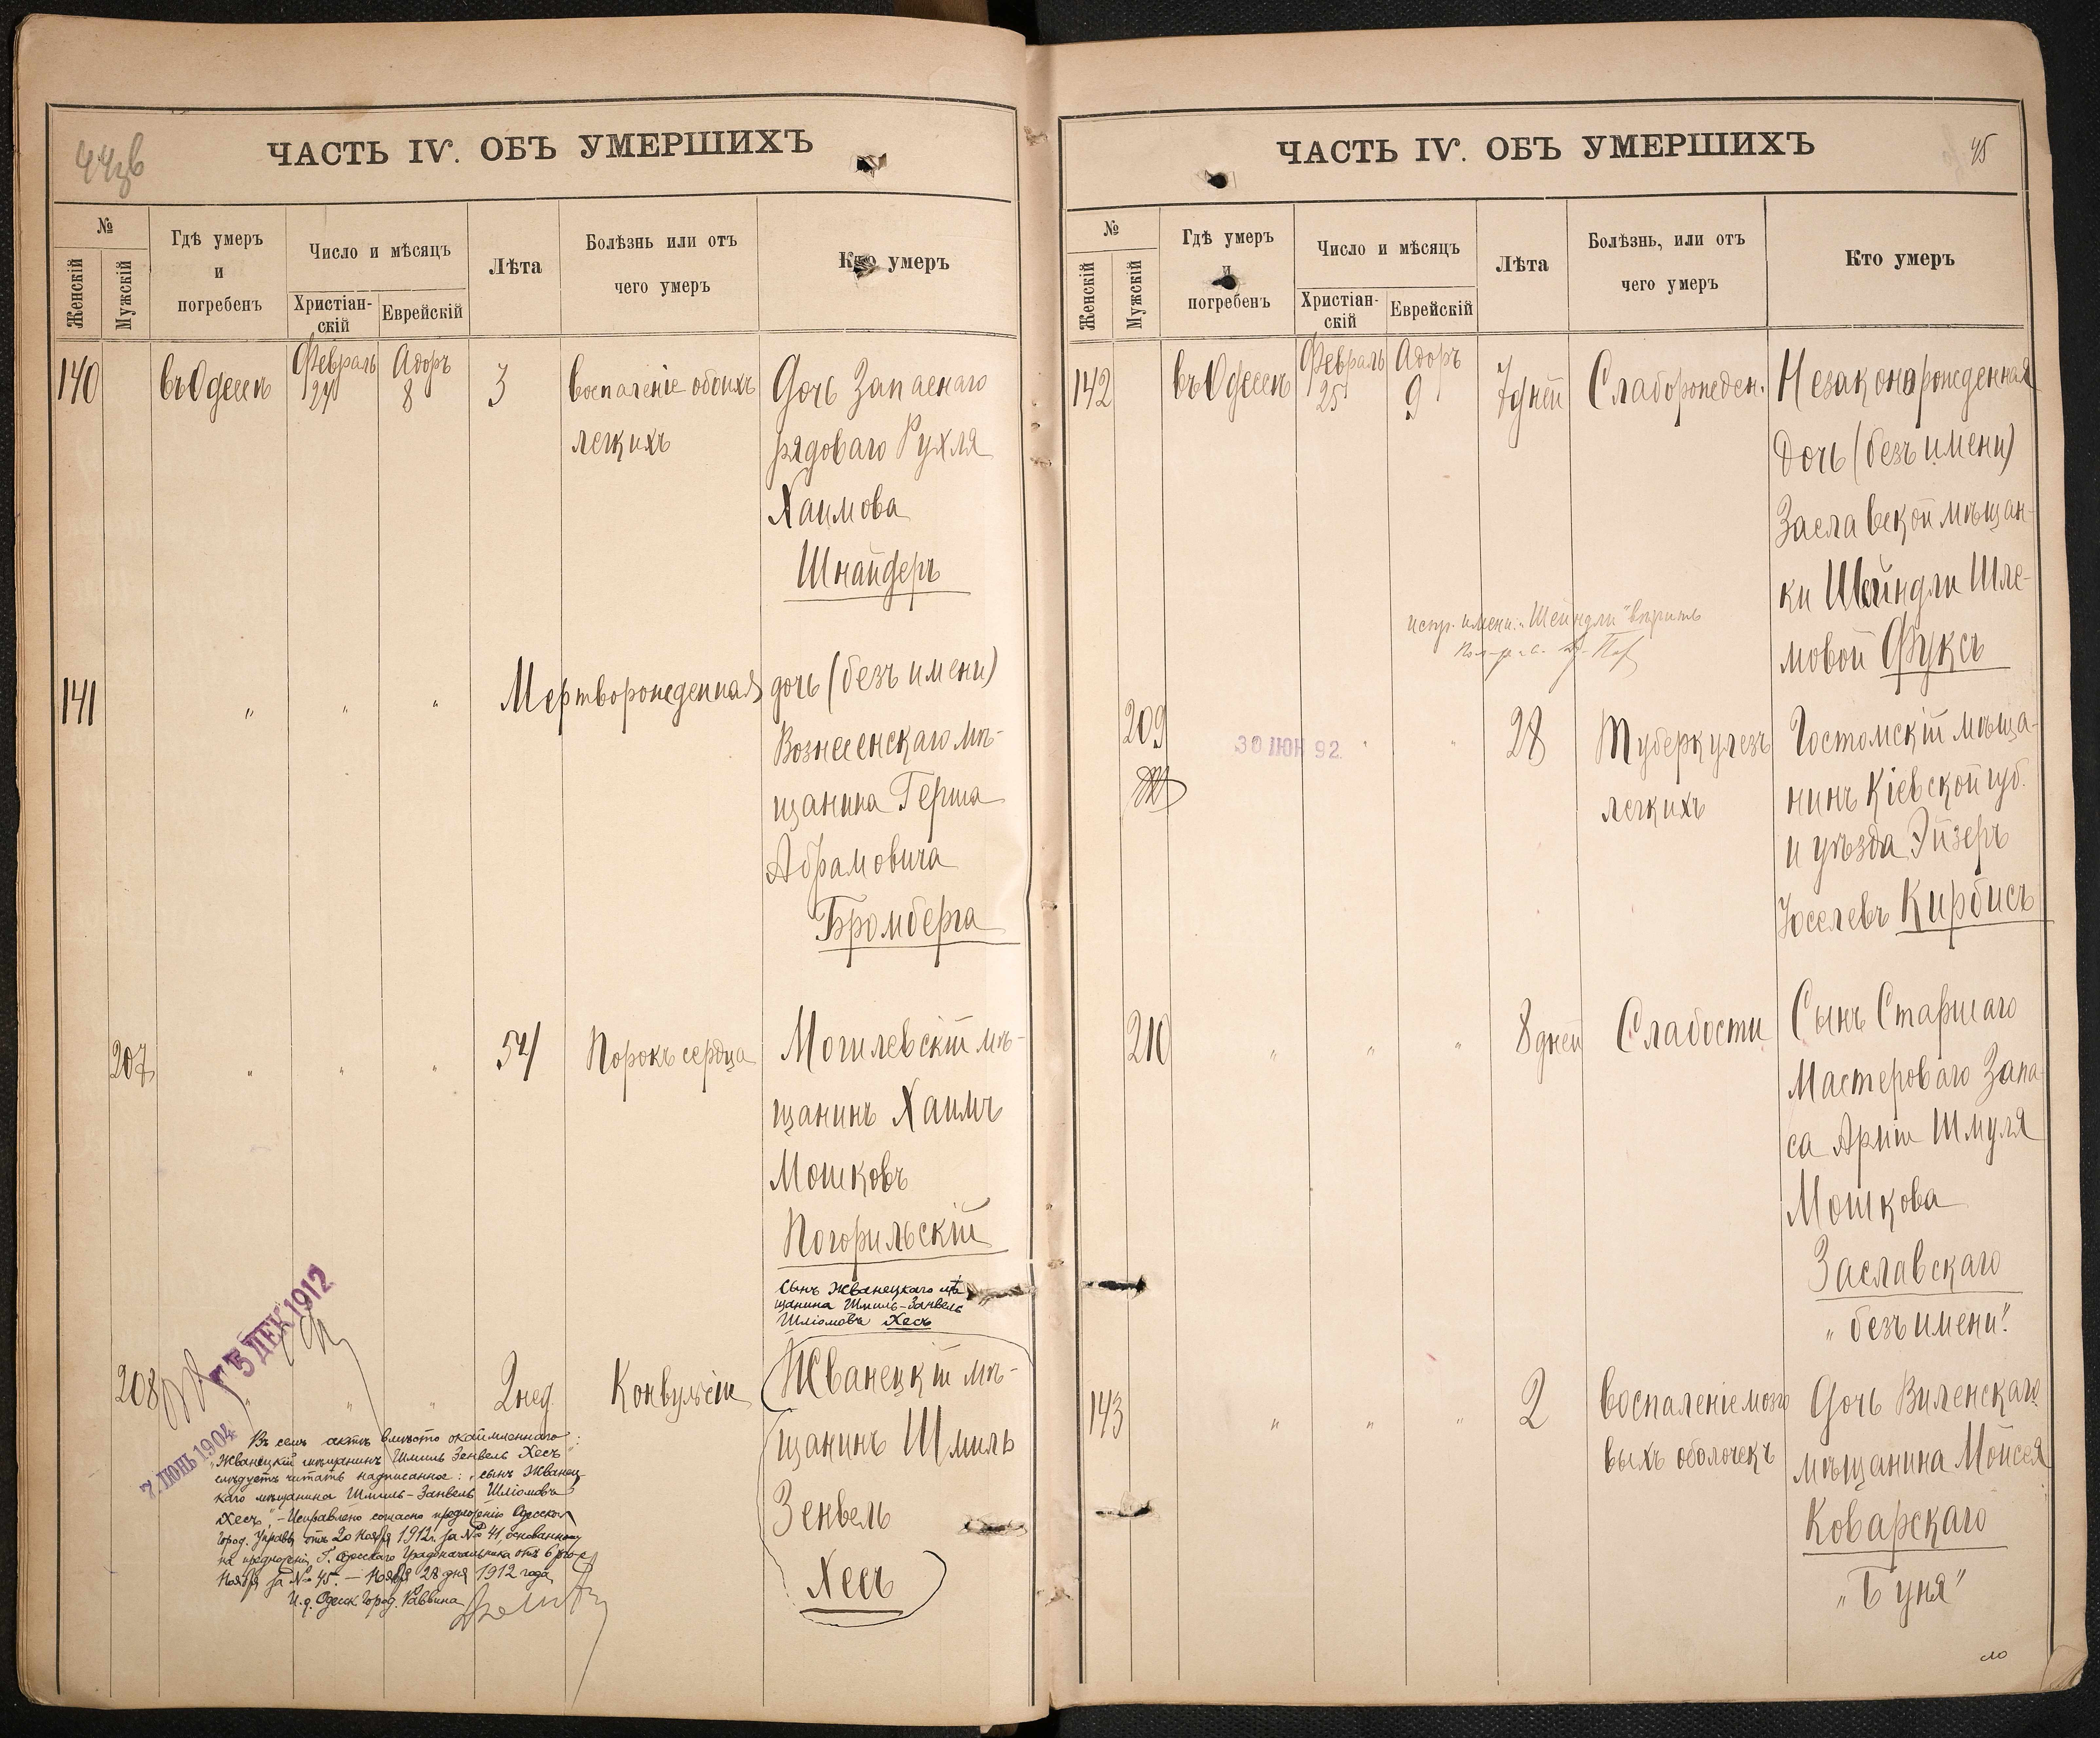 44 об
ЧАСТЬ IV. ОБЪ УМЕРШИХЪ
№
Женскій
Мужскій
Гдѣ умеръ
и
погребенъ
Число и мѣсяцъ
Христіан-
скій
Еврейскій
Лѣта
Болѣзнь или отъ
чего умеръ
Кто умеръ
140
въ Одессѣ
Февраль
24
Адоръ
8
3
воспаленіе обоихъ
легкихъ
Дочь Запаснаго
рядоваго Рухля
Хаимова
Шнайдеръ
141
" " "
Мертворожденная дочь (безъ имени)
Вознесенскаго мѣ-
щанина Герша
Абрамовича
Бромберга
207
" " "
54
Порокъ сердца
Могилевскій мѣ-
щанинъ Хаимъ
Мошковъ
Погорильскій
сынъ Жванецкаго мѣ
щанина Шмиль-Занвель
Шліомовъ Хесъ
208
15 ДЕК 1912
" " "
2 нед.
Конвульсіи
Жванецкій мѣ-
щанинъ Шмиль
Зенвель
Хесъ
7 ІЮНЬ 1904
Въ семъ актѣ вмѣсто окаймленнаго:
"Жванецкій мѣщанинъ Шмиль Зенвель Хесъ"
слѣдуетъ читать надписанное: "сынъ Жванец-
каго мѣщанина Шмиль-Занвель Шліомовъ
Хесъ". – Исправлено согласно предложенію Одесской
Город. Управы отъ 20 Ноября 1912 г. за № 41, основанному
на предложеніи Г. Одесскаго Градоначальника отъ 6го
Ноября за № 45. – Ноября 28 дня 1912 года
И. д. Одесск. Город. Раввина
45
ЧАСТЬ IV. ОБЪ УМЕРШИХЪ
№
Женскій
Мужскій
Гдѣ умеръ
и
погребенъ
Число и мѣсяцъ
Христіан-
скій
Еврейскій
Лѣта
Болѣзнь, или отъ
чего умеръ
Кто умеръ
142
въ Одессѣ
Февраль
25
Адоръ
9
7 дней
Слаборожден.
Незаконорожденная
Дочь (безъ имени)
Заславской мѣщан-
ки Шейндли Шле-
мовой Фуксъ
испр. имени: "Шейндли" вѣрить
209
30 ІЮН 92
" "
28
Туберкулезъ
легкихъ
Гостомскій мѣща-
нинъ Кіевской губ.
и уѣзда Эйзеръ
Іоселевъ Кирбисъ
210
" " "
8 дней
Слабости
Сынъ Старшаго
Мастероваго Запа
са Арміи Шмуля
Мошкова
Заславскаго
"безъ имени".
143
" " "
2
воспаленіе мозго
выхъ оболочекъ
Дочь Виленскаго
мѣщанина Мойсея
Коварскаго
"Буня"